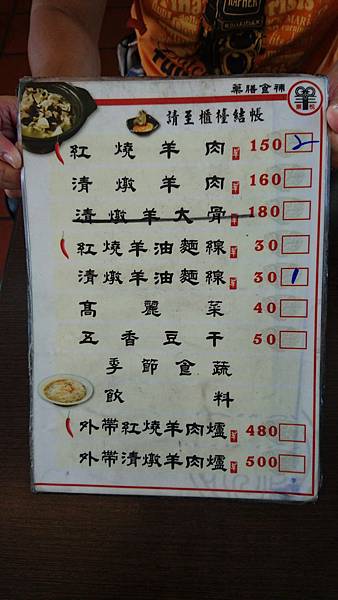 藥膳食補
請至櫃檯結帳
紅燒羊肉 150 2
清燉羊肉 160
清燉羊大骨 180
紅燒羊油麵線 30
清燉羊油麵線 30 1
高麗菜 40
五香豆干 50
季節食蔬
飲料
外帶紅燒羊肉爐 480
外帶清燉羊肉爐 500